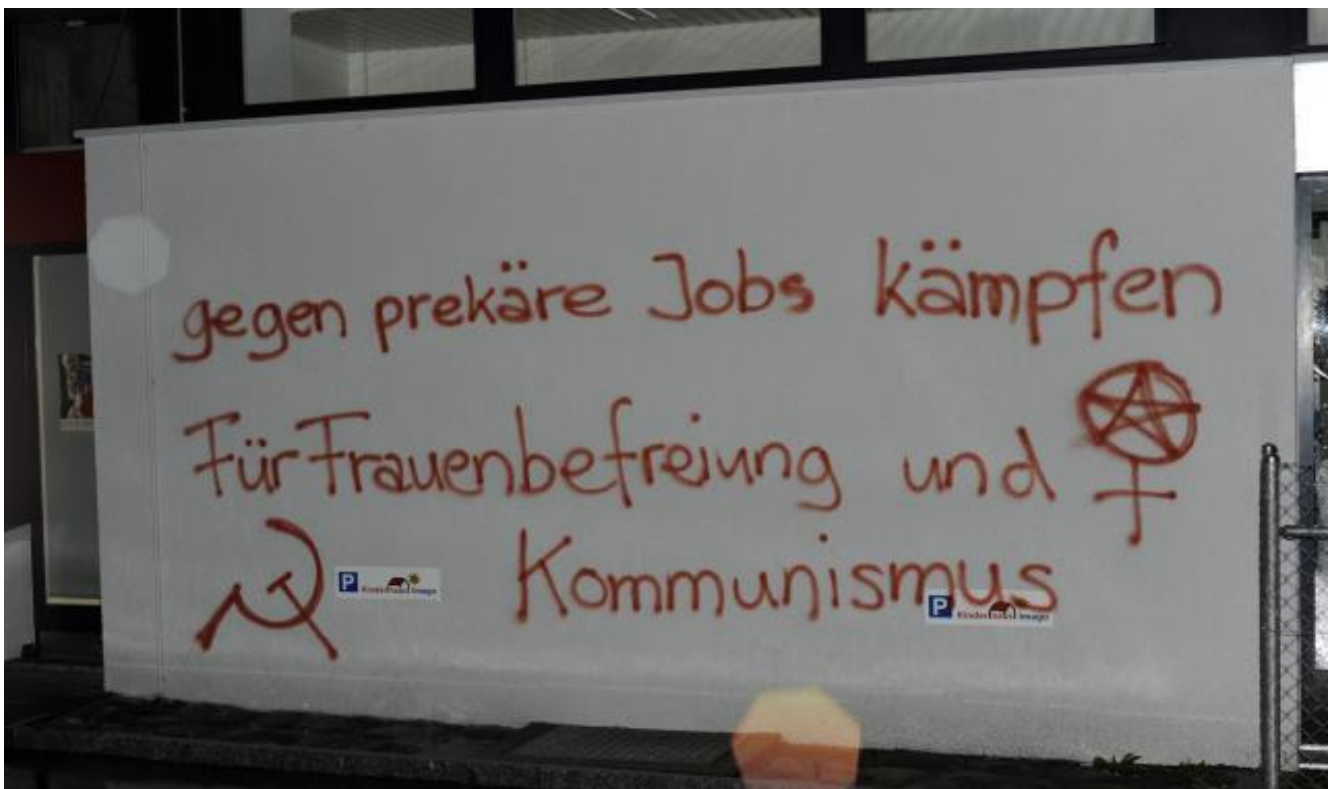 gegen prekäre Jobs kämpfen
Für Frauenbefreiung und
Kommunismus
P Kinderhaus Imago
P Kinderhaus Imago